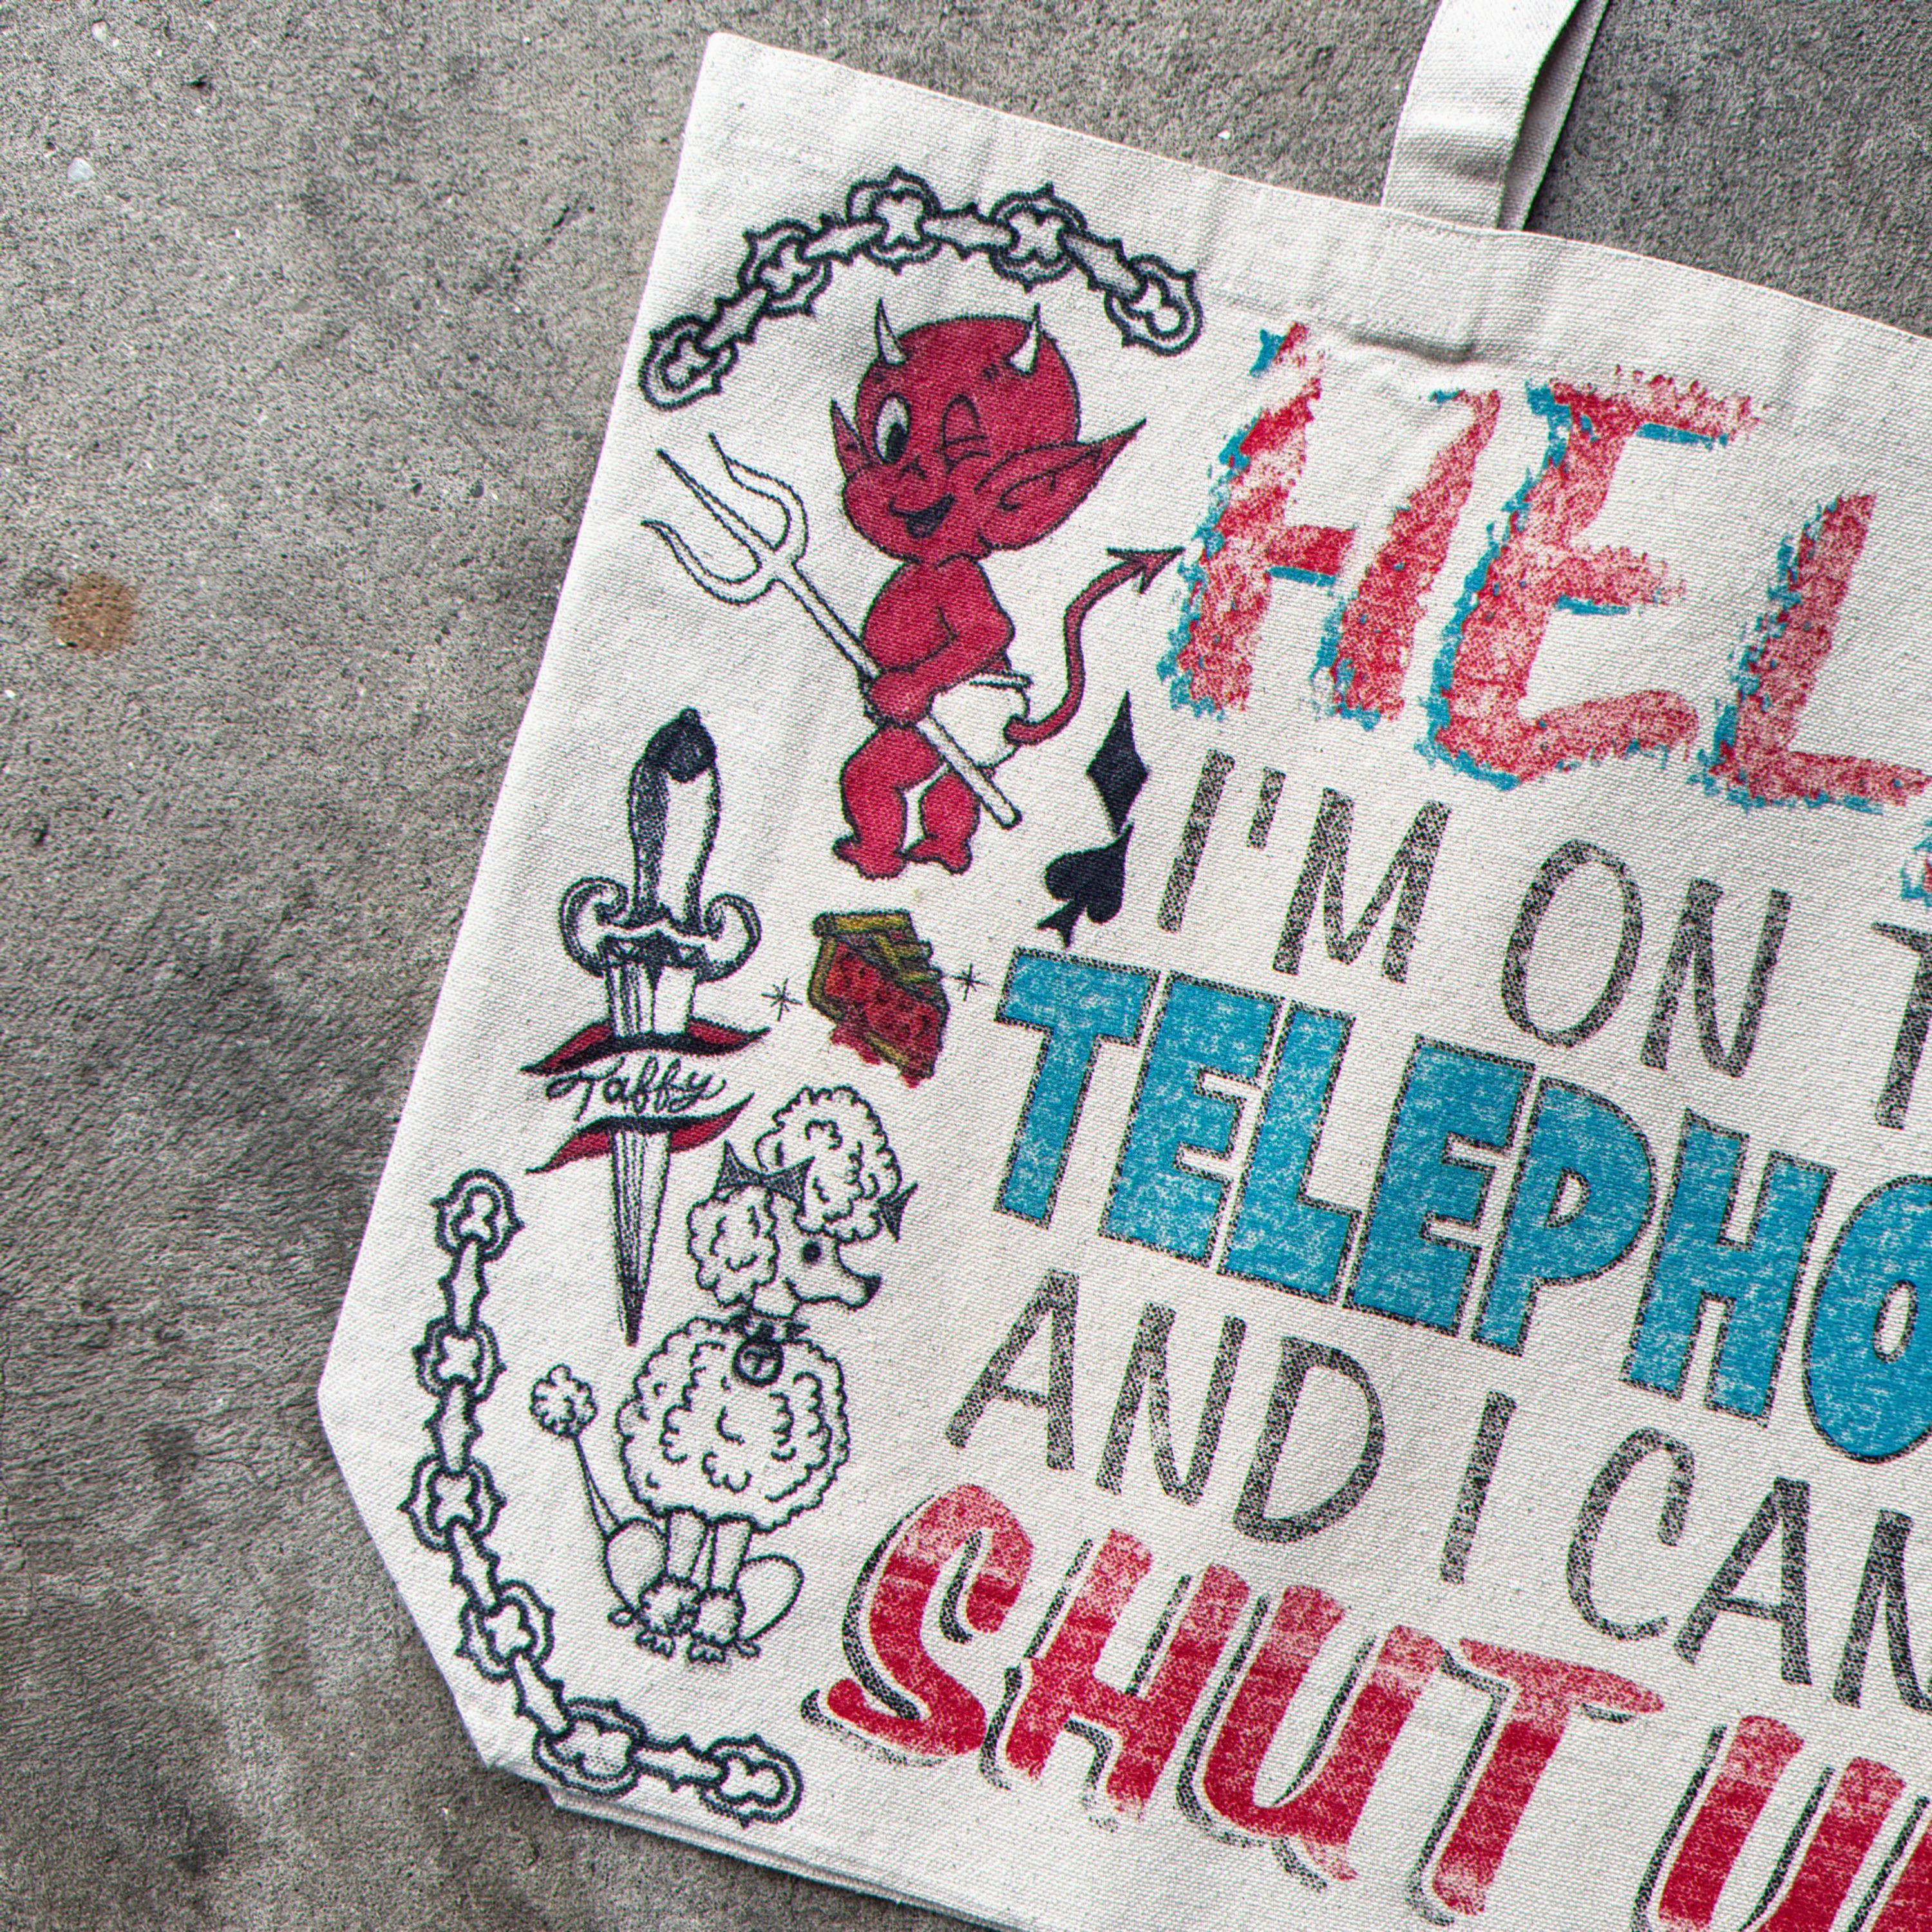 HEL
I'M ON T
TELEPHO
AND I CAN
SHUT U
Taffy